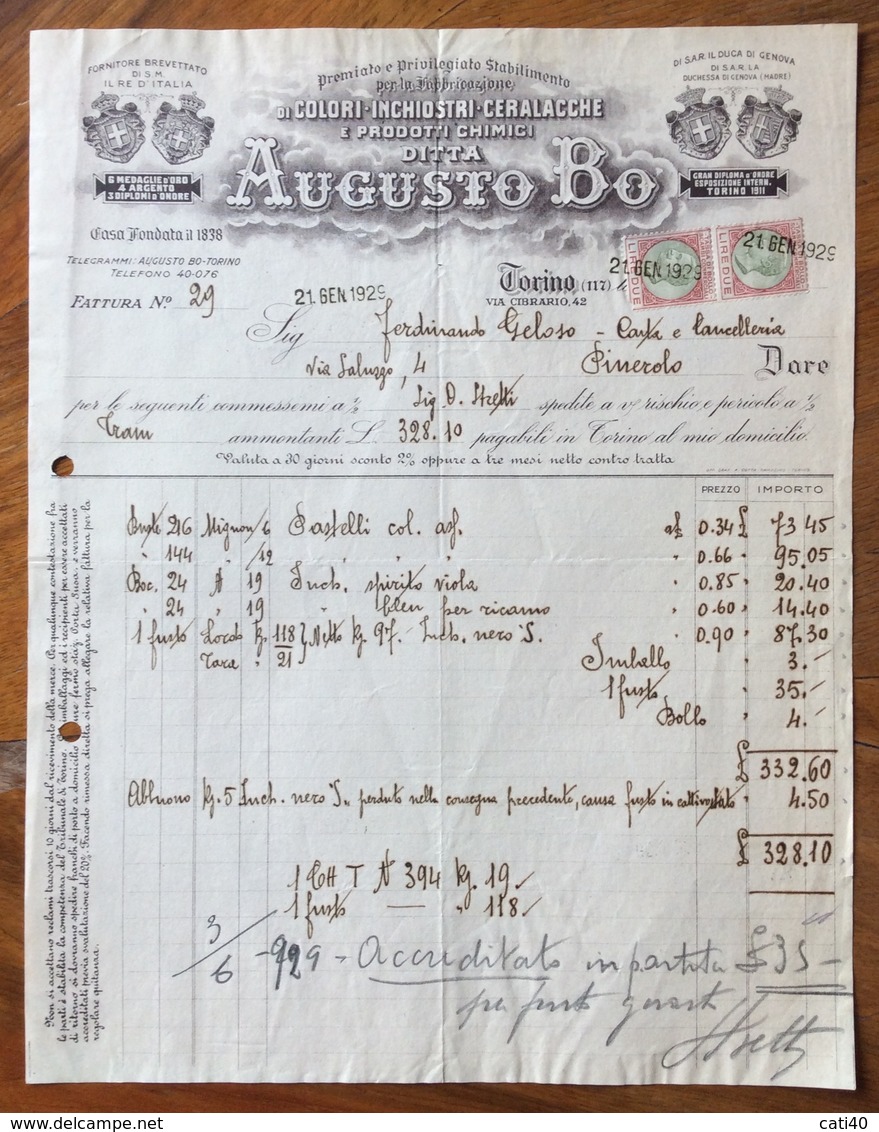 FORNITORE BREVETTATO
DI S.M.
IL RE D'ITALIA
Premiato e Privilegiato Stabilimento
per la Fabbricazione
DI COLORI-INCHIOSTRI-CERALACCHE
E PRODOTTI CHIMICI
DITTA
AUGUSTO BO
DI S.A.R. IL DUCA DI GENOVA
DI S.A.R. LA
DUCHESSA DI GENOVA (MADRE)
6 MEDAGLIE D'ORO
4 ARGENTO
3 DIPLOMI D'ONORE
GRAN DIPLOMA D'ONORE
ESPOSIZIONE INTERN.
TORINO 1911
Casa Fondata il 1838
TELEGRAMMI: AUGUSTO BO-TORINO
TELEFONO 40-076
LIRE DUE
LIRE DUE
21. GEN 1929
21. GEN 1929
FATTURA N.º 29
21. GEN 1929
Torino (117)
VIA CIBRARIO, 42
Sig Ferdinando Geloso - Carta e Cancelleria
Via Saluzzo, 4 Pinerolo Dare
per le seguenti commessemi a ½ Sig. O. Stretti spedite a vº rischio e pericolo a ½
Tram ammontanti L. 328.10 pagabili in Torino al mio domicilio.
Valuta a 30 giorni sconto 2% oppure a tre mesi netto contro tratta
PREZZO IMPORTO
Buste 216 Mignon/6 Pastelli col. asf. a £ 0.34 £ 73 45
" 144 /12 " " " " 0.66 " 95.05
Boc. 24 A 19 Inch. spirito viola " 0.85 " 20.40
" 24 " 19 " bleu per ricamo " 0.60 " 14.40
1 fusto Lordo Kg. 118 } Netto kg 97. Inch. nero "S. " 0.90 " 87.30
Tara " 21 Imballo " 3.-
1 fusto " 35.-
Bollo " 4.-
£ 332.60
Abbuono kg. 5 Inch. nero "S" perduto nella consegna precedente, causa fusto in cattivo stato " 4.50
£ 328.10
1 CH T N 394 kg. 19
1 fusto — " 118
3/6 - 929 - Accreditato in partita £ 35 -
per fusto
Stretti
Non si accettano reclami trascorsi 10 giorni dal ricevimento della merce. Per qualunque contestazione fra
le parti è stabilita la competenza del Tribunale di Torino. imballaggi ed i recipienti per essere accettati
di ritorno si dovranno spedire franchi di porto a domicilio fermo staz. Porta Susa, e verranno
accreditati previa svalutazione del 20%. Facendo rimessa diretta si prega allegare la relativa fattura per la
regolare quitanza.
cati40